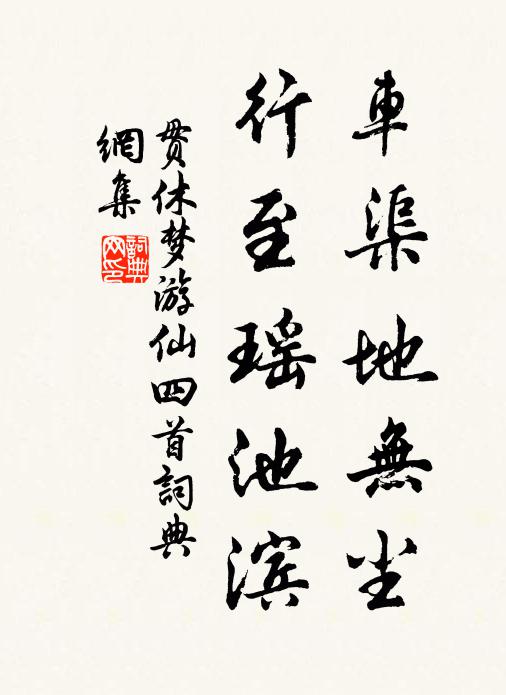 車渠地無尘
行至瑶池滨
貫休梦游仙四首詞典
網集
詞典
网印